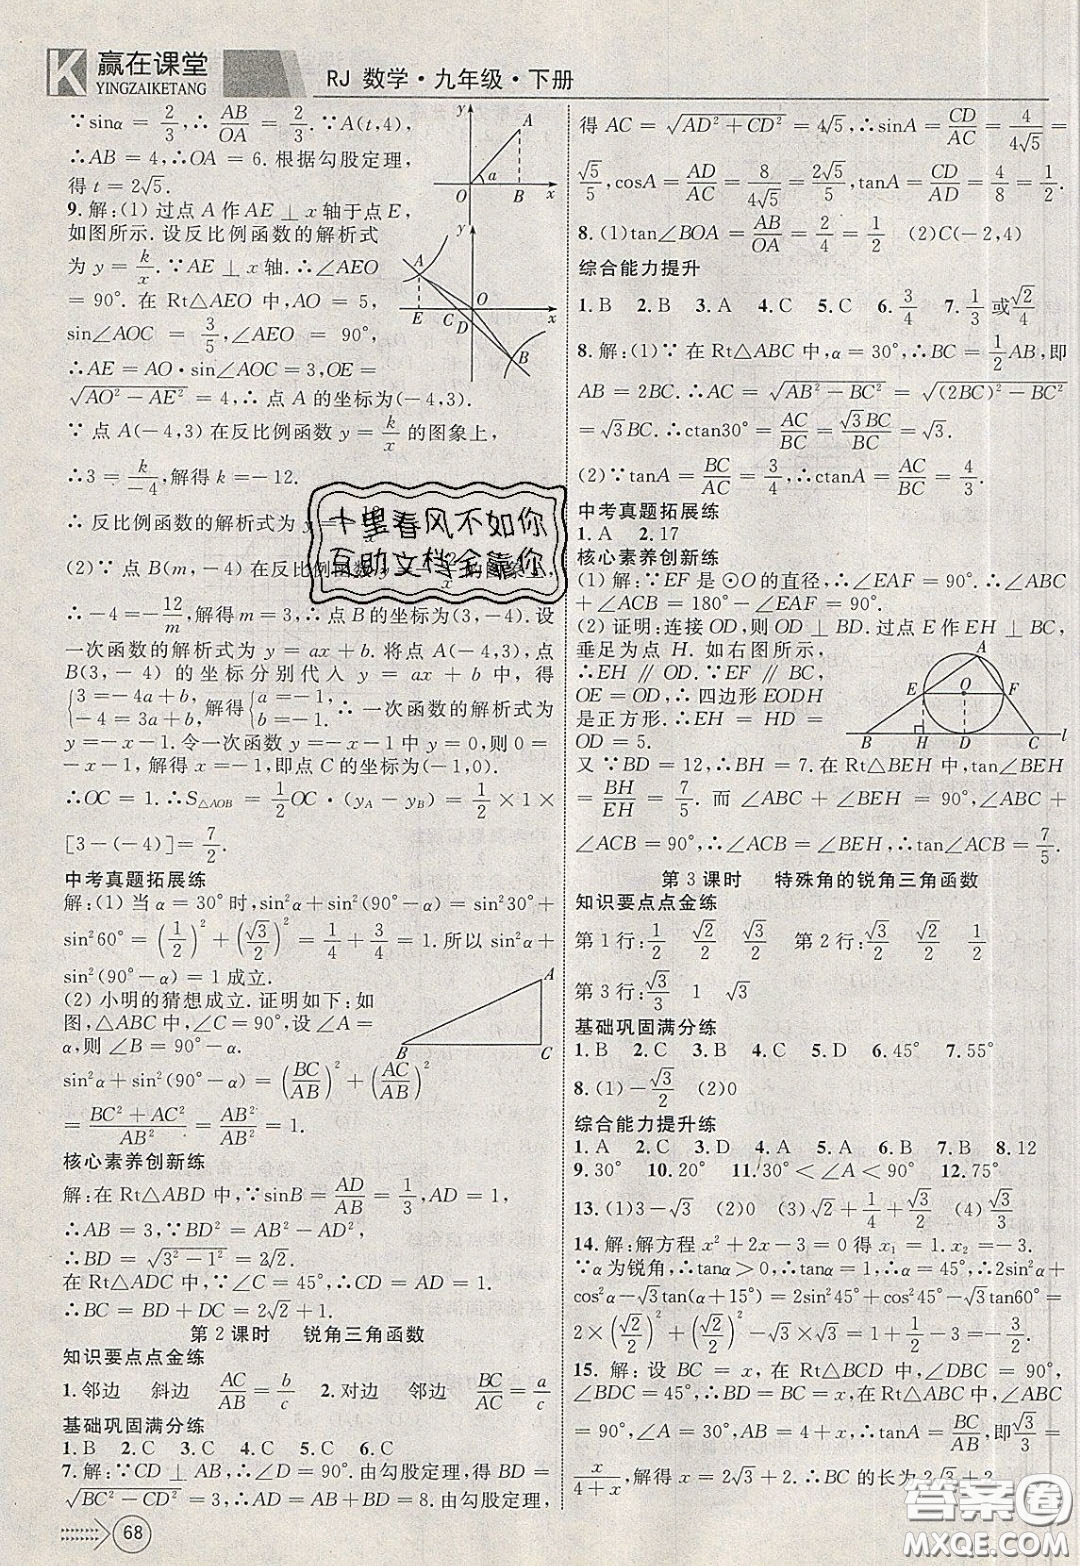 K 赢在课堂
YINGZAIKETANG
RJ 数学·九年级·下册
∵sinα=2/3,∴AB/OA=2/3.∵A(t,4),
∴AB=4,∴OA=6.根据勾股定理,
得t=2√5.
9.解:(1)过点A作AE⊥x轴于点E,
如图所示.设反比例函数的解析式
为y=k/x.∵AE⊥x轴.∴∠AEO
=90°.在Rt△AEO中,AO=5,
sin∠AOC=3/5,∠AEO=90°,
∴AE=AO·sin∠AOC=3,OE=
√(AO²-AE²)=4,∴点A的坐标为(-4,3).
∵点A(-4,3)在反比例函数y=k/x的图象上,
∴3=k/-4,解得k=-12.
∴反比例函数的解析式为y=
(2)∵点B(m,-4)在反比例函数
∴-4=-12/m,解得m=3,∴点B的坐标为(3,-4).设
一次函数的解析式为y=ax+b.将点A(-4,3),点
B(3,-4)的坐标分别代入y=ax+b中,得
{3=-4a+b, -4=3a+b,解得{a=-1, b=-1.∴一次函数的解析式为
y=-x-1.令一次函数y=-x-1中y=0,则0=
-x-1,解得x=-1,即点C的坐标为(-1,0).
∴OC=1.∴S△AOB=1/2OC·(yA-yB)=1/2×1×
[3-(-4)]=7/2.
中考真题拓展练
解:(1)当α=30°时,sin²α+sin²(90°-α)=sin²30°+
sin²60°=(1/2)²+(√3/2)²=1/4+3/4=1.所以sin²α+
sin²(90°-α)=1成立.
(2)小明的猜想成立.证明如下:如
图,△ABC中,∠C=90°,设∠A=
α,则∠B=90°-α.
sin²α+sin²(90°-α)=(BC/AB)²+(AC/AB)²
=(BC²+AC²)/AB²=AB²/AB²=1.
核心素养创新练
解:在Rt△ABD中,∵sinB=AD/AB=1/3,AD=1,
∴AB=3,∵BD²=AB²-AD²,
∴BD=√(3²-1²)=2√2.
在Rt△ADC中,∵∠C=45°,∴CD=AD=1.
∴BC=BD+DC=2√2+1.
第2课时 锐角三角函数
知识要点点金练
1.邻边 斜边 AC/AB=b/c 2.对边 邻边 BC/AC=a/c
基础巩固满分练
1.B 2.C 3.C 4.A 5.C 6.C
7.解:∵CD⊥AB,∴∠CDB=90°.由勾股定理,得BD=
√(BC²-CD²)=3.∴AD=AB-BD=8.由勾股定理,
68
得AC=√(AD²+CD²)=4√5,∴sinA=CD/AC=4/4√5=
√5/5,cosA=AD/AC=8/4√5=2√5/5,tanA=CD/AD=4/8=1/2.
8.(1)tan∠BOA=AB/OA=2/4=1/2 (2)C(-2,4)
综合能力提升
1.B 2.B 3.A 4.C 5.C 6.3/4 7.1/3或√2/4
8.解:(1)∵在Rt△ABC中,α=30°,∴BC=1/2AB,即
AB=2BC.∴AC=√(AB²-BC²)=√((2BC)²-BC²)
=√3BC.∴ctan30°=AC/BC=√3BC/BC=√3.
(2)∵tanA=BC/AC=3/4,∴ctanA=AC/BC=4/3.
中考真题拓展练
1.A 2.17
核心素养创新练
(1)解:∵EF是⊙O的直径,∴∠EAF=90°.∴∠ABC
+∠ACB=180°-∠EAF=90°.
(2)证明:连接OD,则OD⊥BD.过点E作EH⊥BC,
垂足为点H.如右图所示,
∴EH∥OD.∵EF∥BC,
OE=OD,∴四边形EODH
是正方形.∴EH=HD=
OD=5.
又∵BD=12,∴BH=7.在Rt△BEH中,tan∠BEH
=BH/EH=7/5.而∠ABC+∠BEH=90°,∠ABC+
∠ACB=90°,∴∠ACB=∠BEH,∴tan∠ACB=7/5.
第3课时 特殊角的锐角三角函数
知识要点点金练
第1行:1/2 √2/2 √3/2 第2行:√3/2 √2/2 1/2
第3行:√3/3 1 √3
基础巩固满分练
1.B 2.C 3.B 4.C 5.D 6.45° 7.55°
8.(1)-√3/2 (2)0
综合能力提升练
1.A 2.C 3.D 4.A 5.A 6.B 7.B 8.12
9.30° 10.20° 11.30°<∠A<90° 12.75°
13.(1)3-√3 (2)0 (3)√2+1/4+√3/2 (4)√3/3
14.解:解方程x²+2x-3=0得x₁=1.x₂=-3.
∵α为锐角,∴tanα>0,∴tanα=1,∴α=45°,∴2sin²α+
cos²α-√3tan(α+15°)=2sin²45°+cos²45°-√3tan60°=
2×(√2/2)²+(√2/2)²-√3×√3=1+1/2-3=-3/2.
15.解:设BC=x,在Rt△BCD中,∠DBC=90°,
∠BDC=45°,∴BD=BC=x,在Rt△ABC中,∠ABC
=90°,∠A=30°,AB=4+x,∴tanA=BC/AB,即√3/3=
x/(4+x),解得x=2√3+2.∴BC的长为2√3+2.
y
A
α
O
B
x
y
A
E
C
O
D
x
B
A
B
C
A
E
O
F
B
H
D
C
l
十里春风不如你
互助文档全靠你
答案圈
MXQE.COM